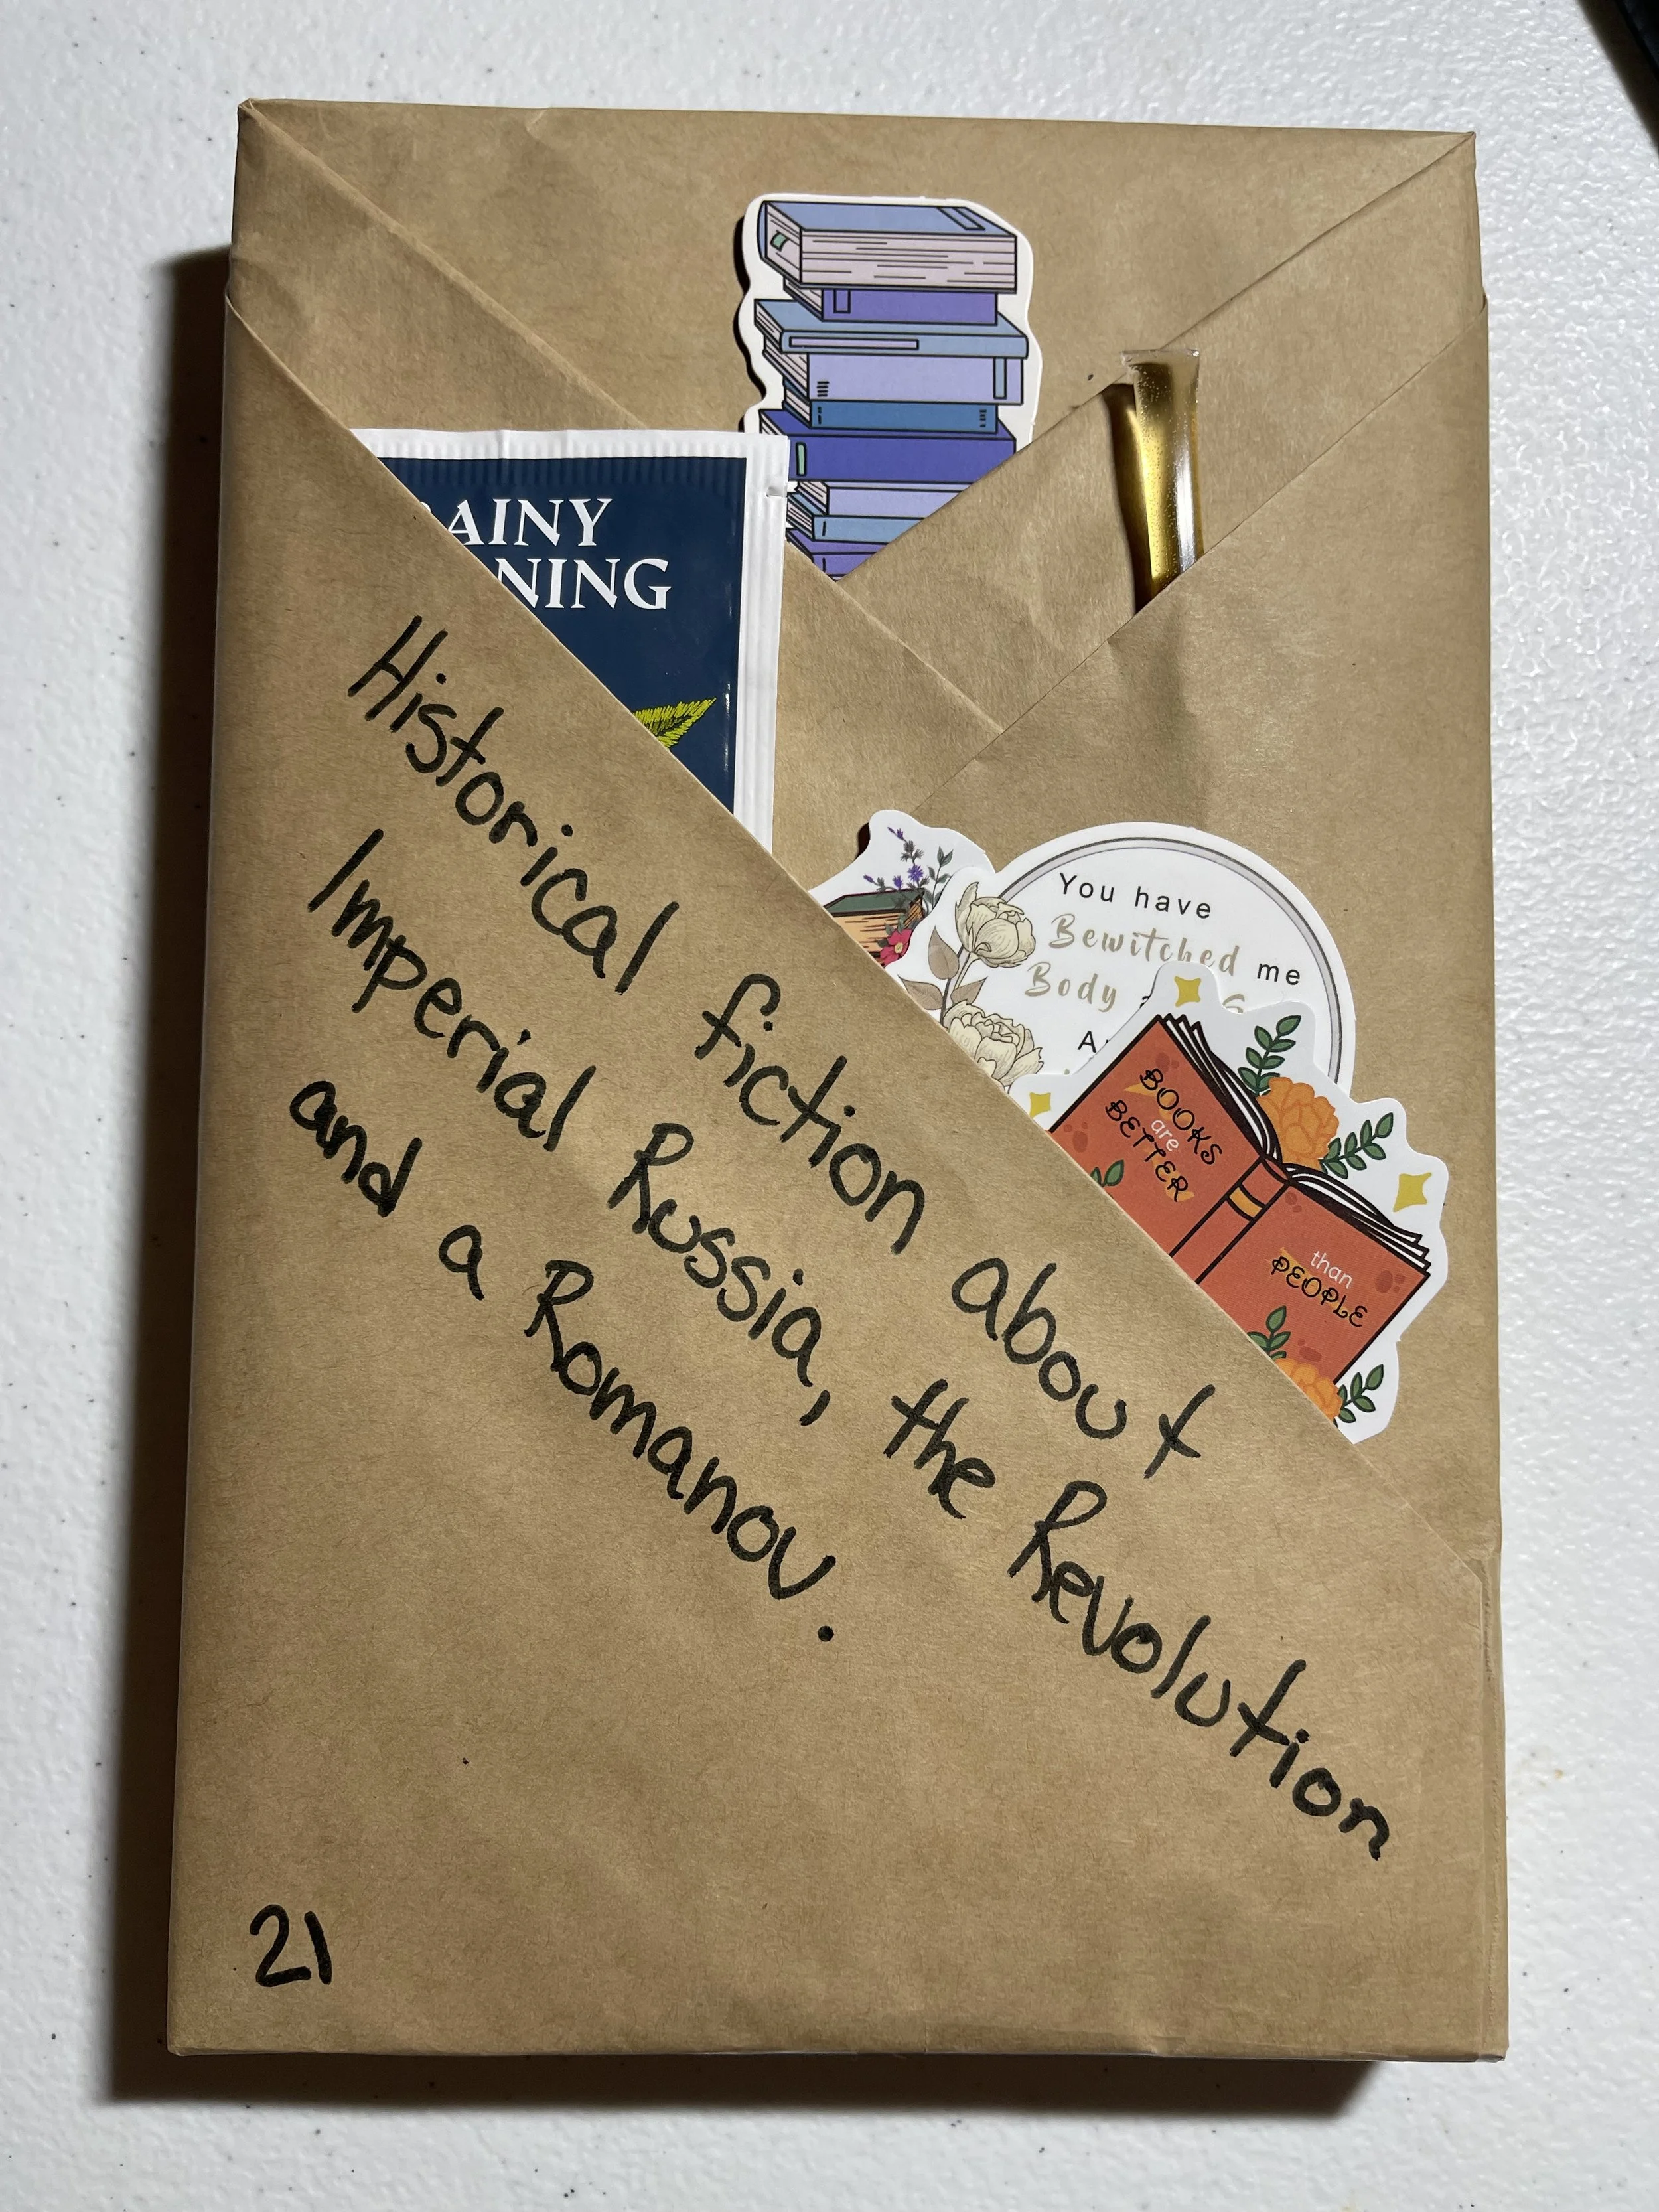 AINY
NING
You have
Bewitched me
Body
BOOKS
are
BETTER
than
PEOPLE
Historical fiction about
Imperial Russia, the Revolution
and a Romanov.
21